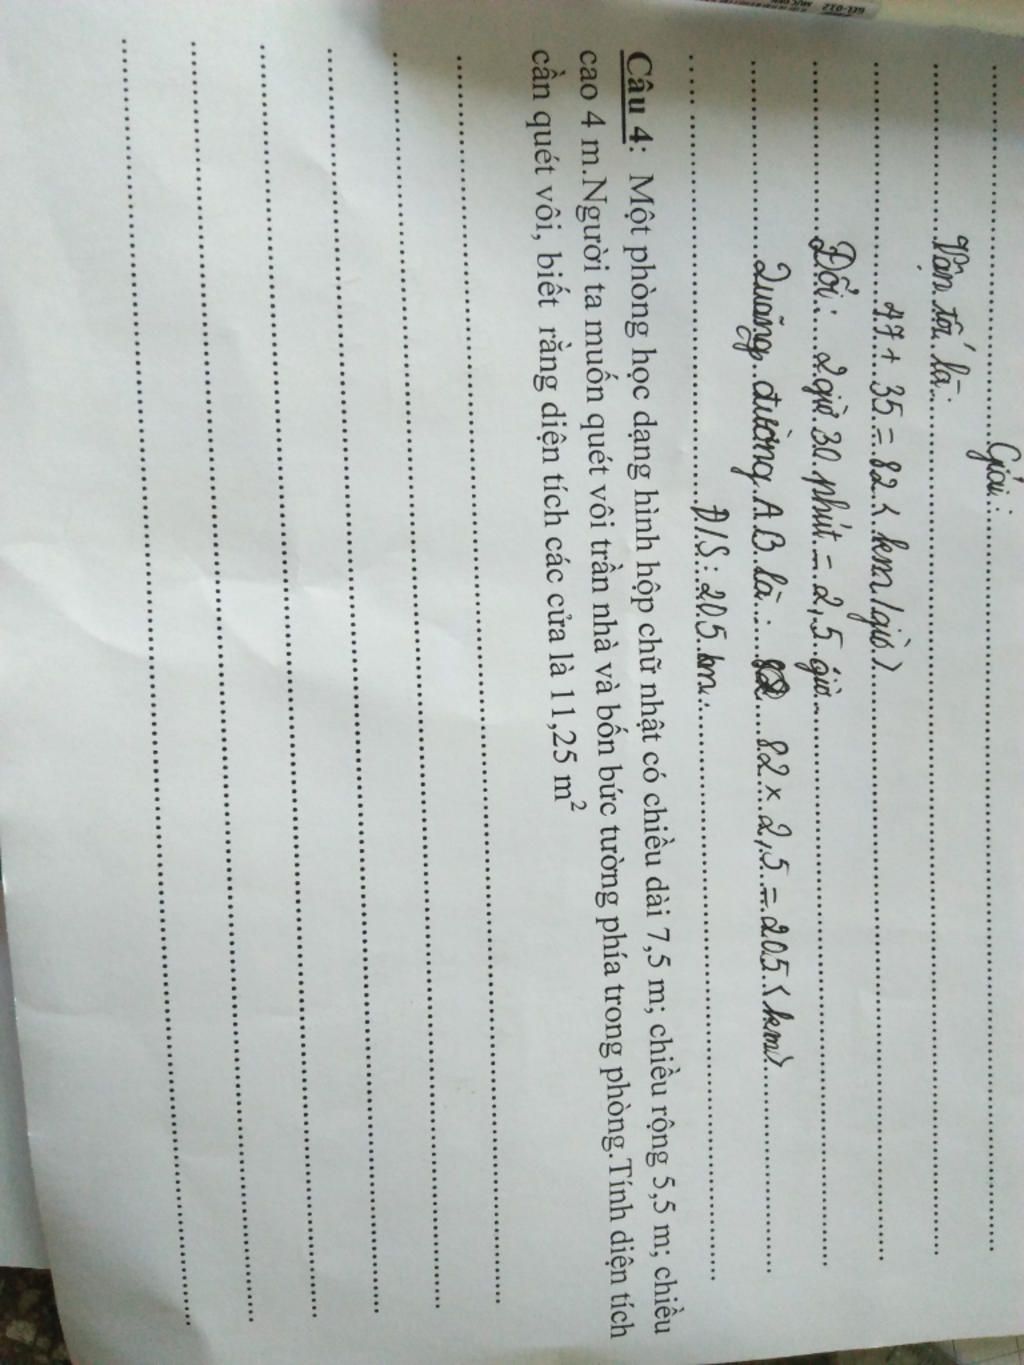 Giải:
Vận tốc là:
47 + 35 = 82 ( km/giờ)
Đổi: 2 giờ 30 phút = 2,5 giờ
Quãng đường AB là: 82 × 2,5 = 205 (km)
Đ/S: 205 km.
Câu 4: Một phòng học dạng hình hộp chữ nhật có chiều dài 7,5 m; chiều rộng 5,5 m; chiều
cao 4 m.Người ta muốn quét vôi trần nhà và bốn bức tường phía trong phòng.Tính diện tích
cần quét vôi, biết rằng diện tích các cửa là 11,25 m²